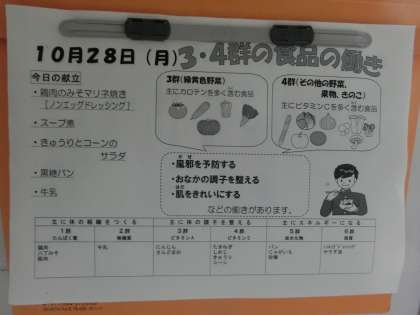 10月28日（月）3・4群の食品の働き
今日の献立
・鶏肉のみそマリネ焼き
［ノンエッグドレッシング］
・スープ煮
・きゅうりとコーンの
サラダ
・黒糖パン
・牛乳
3群（緑黄色野菜）
主にカロテンを多く含む食品
4群（その他の野菜、
果物、きのこ）
主にビタミンCを多く含む食品
・風邪を予防する
・おなかの調子を整える
・肌をきれいにする
などの働きがあります。
主に体の組織をつくる 主に体の調子を整える 主にエネルギーになる
1群 2群 3群 4群 5群 6群
たんぱく質 無機質 ビタミンA ビタミンC 炭水化物 脂質
鶏肉 牛乳 にんじん たまねぎ パン
さんどまめ しめじ じゃがいも サラダ油
きゅうり 砂糖
コーン